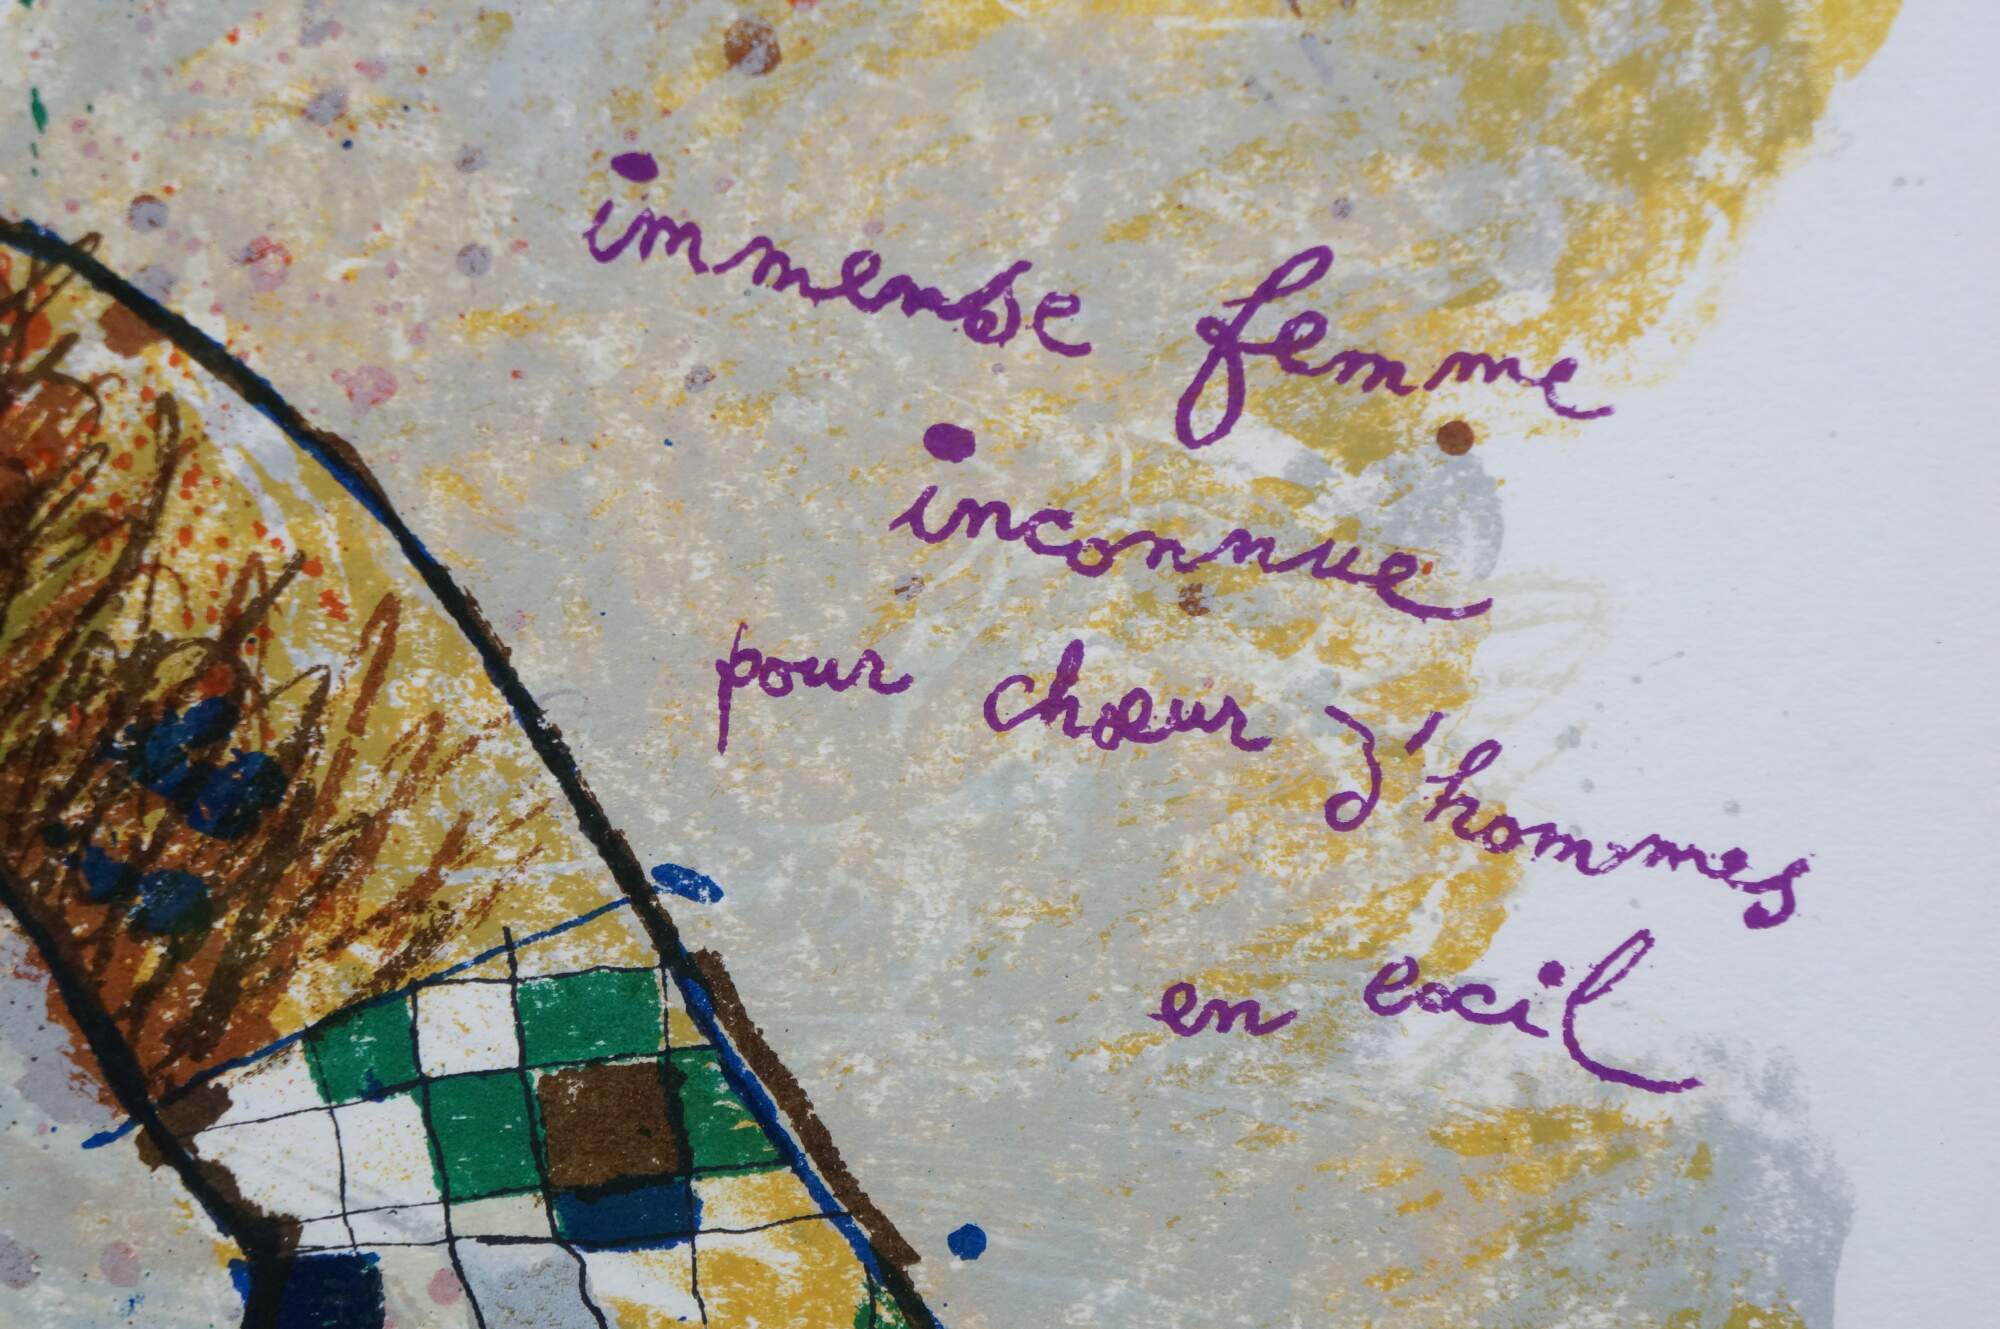 immense femme
inconnue
pour chœur d'hommes
en exil